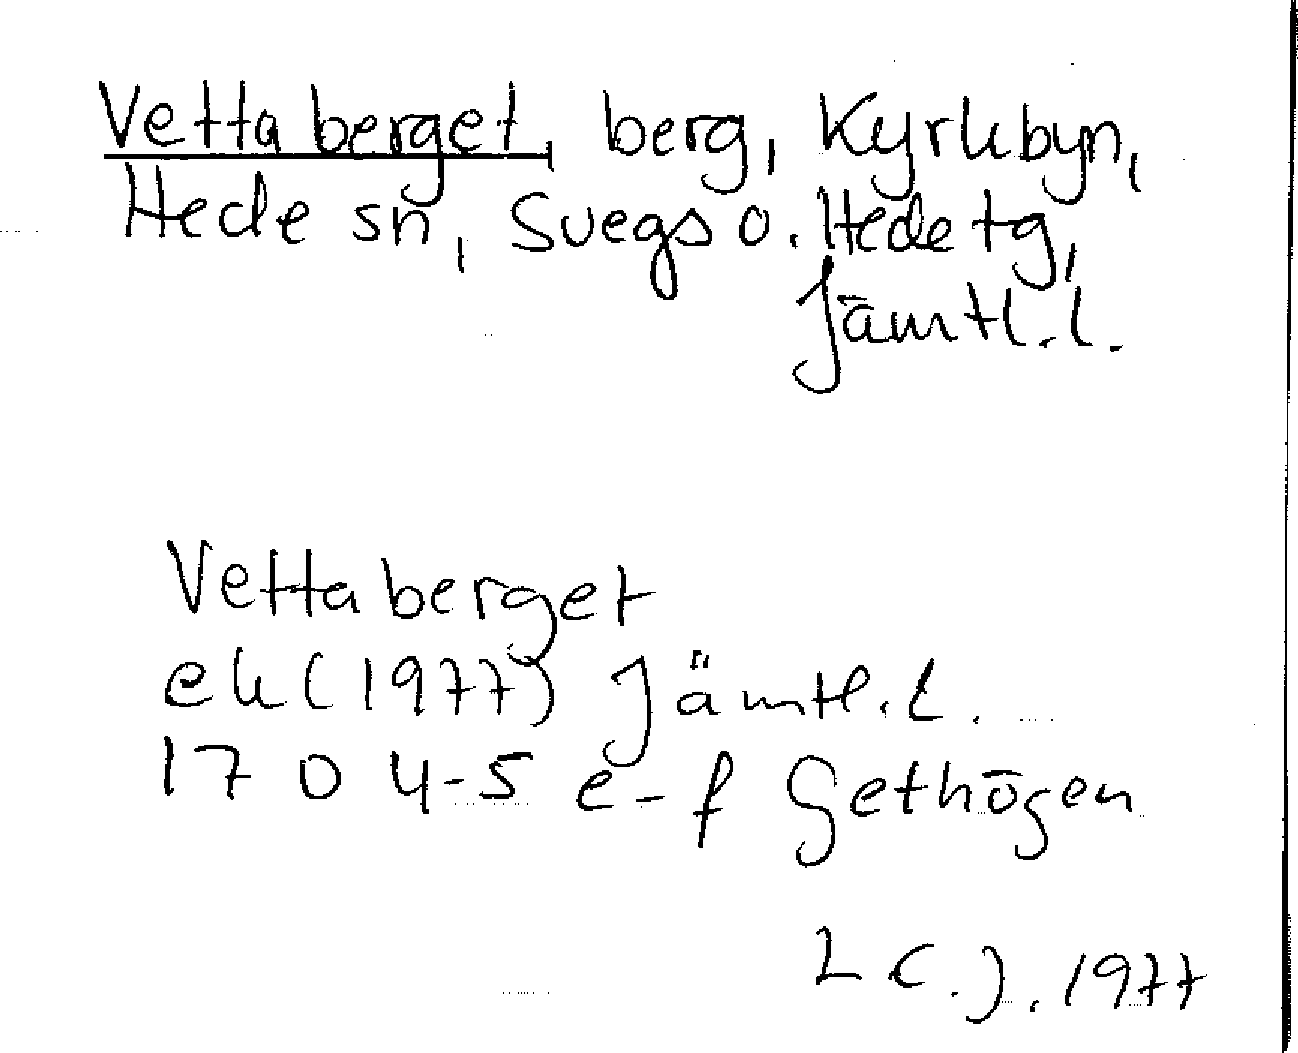 Vettaberget, berg, Kyrkbyn,
Hede sn, Svegs o. Hede tg,
Jämtl.l.
Vettaberget
ek (1977) Jämtl.l.
17 D 4-5 e-f Gethögen
L C.J. 1977